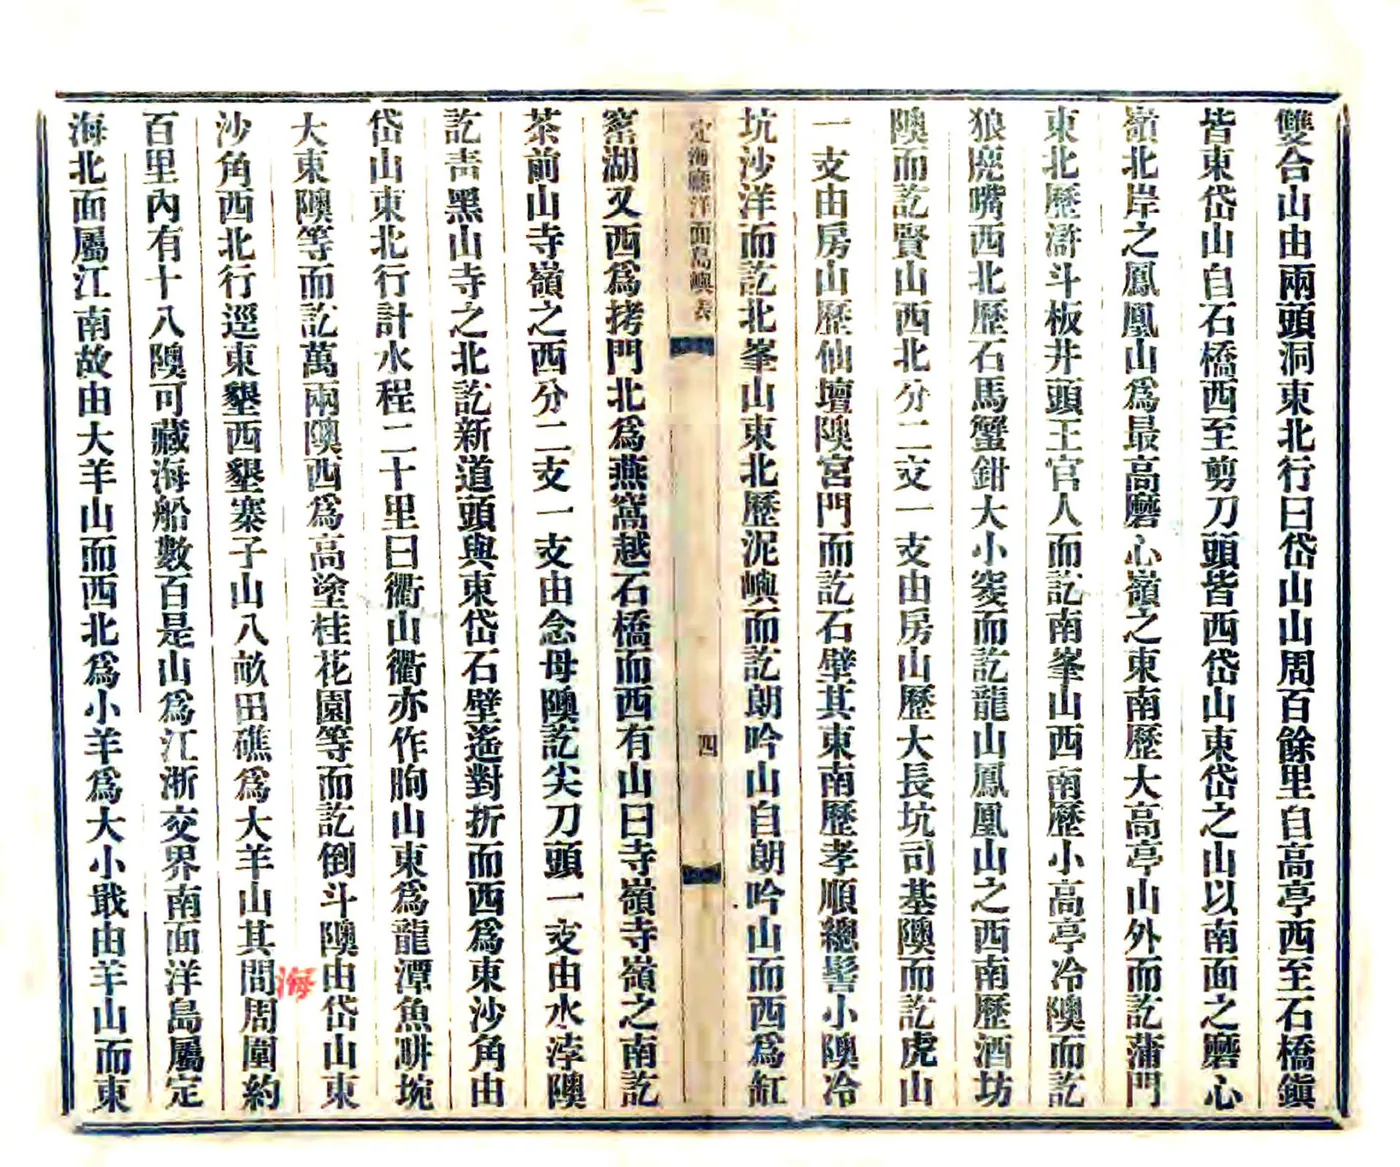 雙合山由兩頭洞東北行曰岱山山周百餘里自高亭西至石橋鎭
皆東岱山自石橋西至剪刀頭皆西岱山東岱之山以南面之磨心
嶺北岸之鳳凰山爲最高磨心嶺之東南歷大高亭山外而訖蒲門
東北歷滸斗板井頭王官人而訖南峯山西南歷小高亭冷隩而訖
狼鹿嘴西北歷石馬蟹鉗大小㚇而訖龍山鳳凰山之西南歷酒坊
隩而訖賢山西北分二支一支由房山歷大長坑司基隩而訖虎山
一支由房山歷仙壇隩宮門而訖石壁其東南歷孝順總髻小隩冷
坑沙洋而訖北峯山東北歷泥嶼而訖朗吟山自朗吟山而西爲缸
定海廳洋面島嶼表
四
窰湖又西爲拷門北爲燕窩越石橋而西有山曰寺嶺寺嶺之南訖
茶前山寺嶺之西分二支一支由念母隩訖尖刀頭一支由水浡隩
訖靑黑山寺之北訖新道頭與東岱石壁遙對折而西爲東沙角由
岱山東北行計水程二十里曰衢山衢亦作朐山東爲龍潭魚畊埦
大東隩等而訖萬兩隩西爲高塗桂花園等而訖倒斗隩由岱山東
沙角西北行逕東墾西墾寨子山八畝田礁爲大羊山其間周圍約
海
百里內有十八隩可藏海船數百是山爲江浙交界南面洋島屬定
海北面屬江南故由大羊山而西北爲小羊爲大小戢由羊山而東